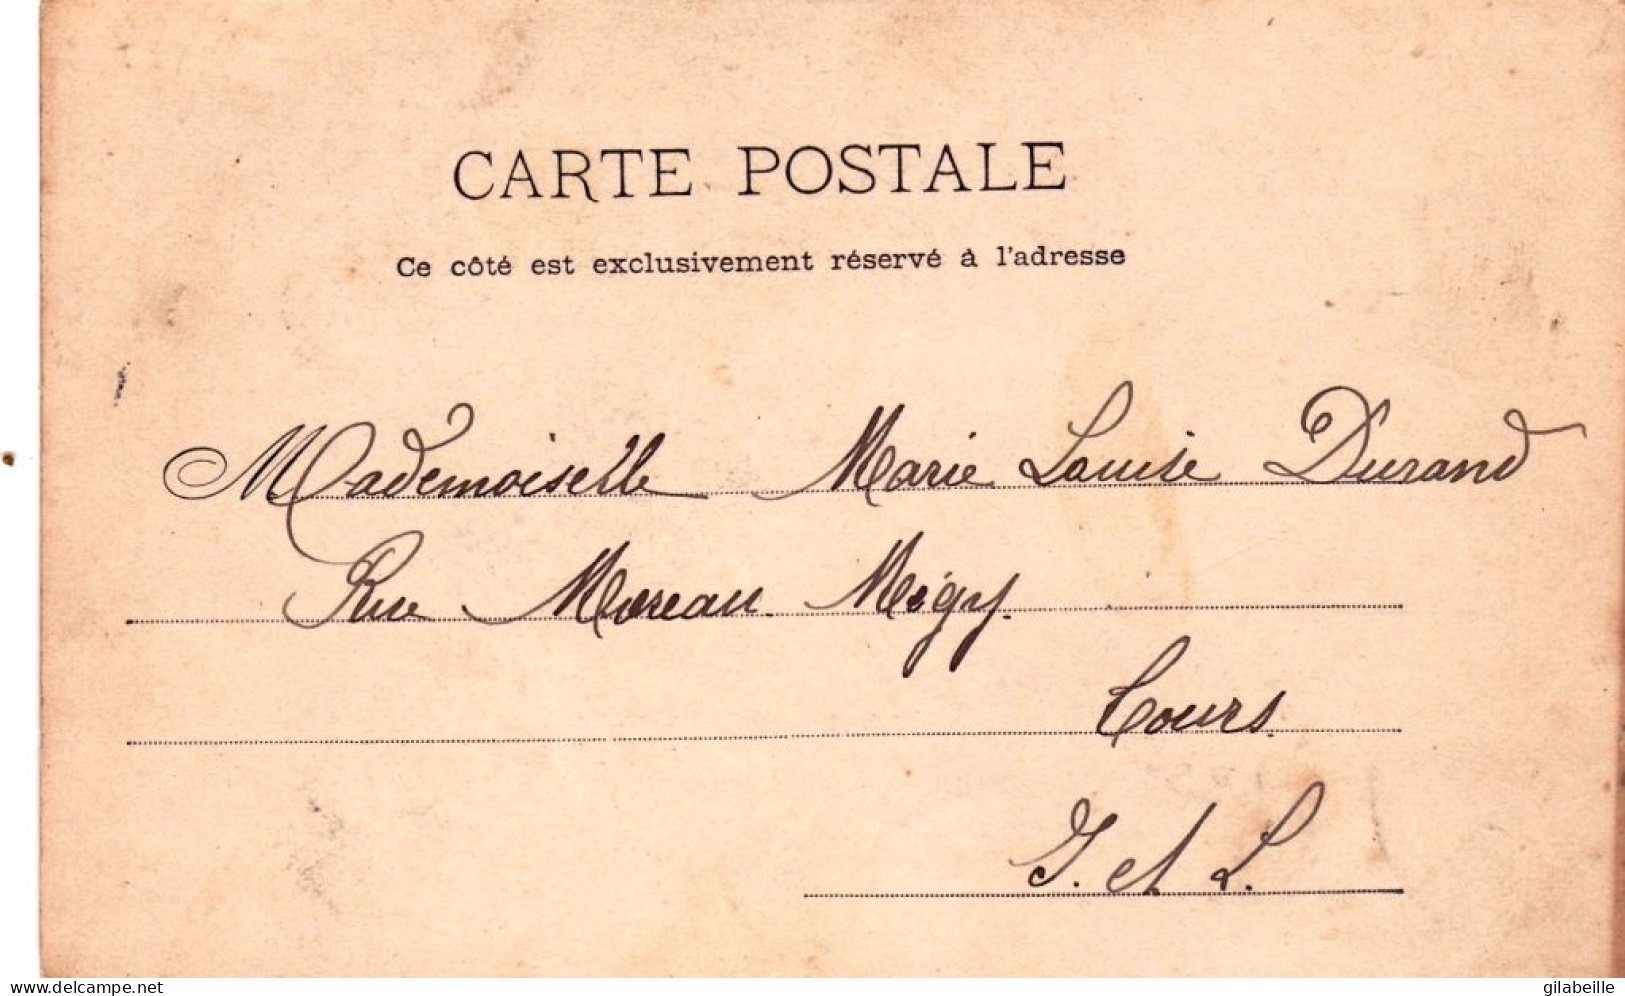 CARTE POSTALE
Ce côté est exclusivement réservé à l'adresse
Mademoiselle Marie Louise Durand
Rue Moreau Mégy.
Tours.
I. et L.
delcampe.net
gilabeille